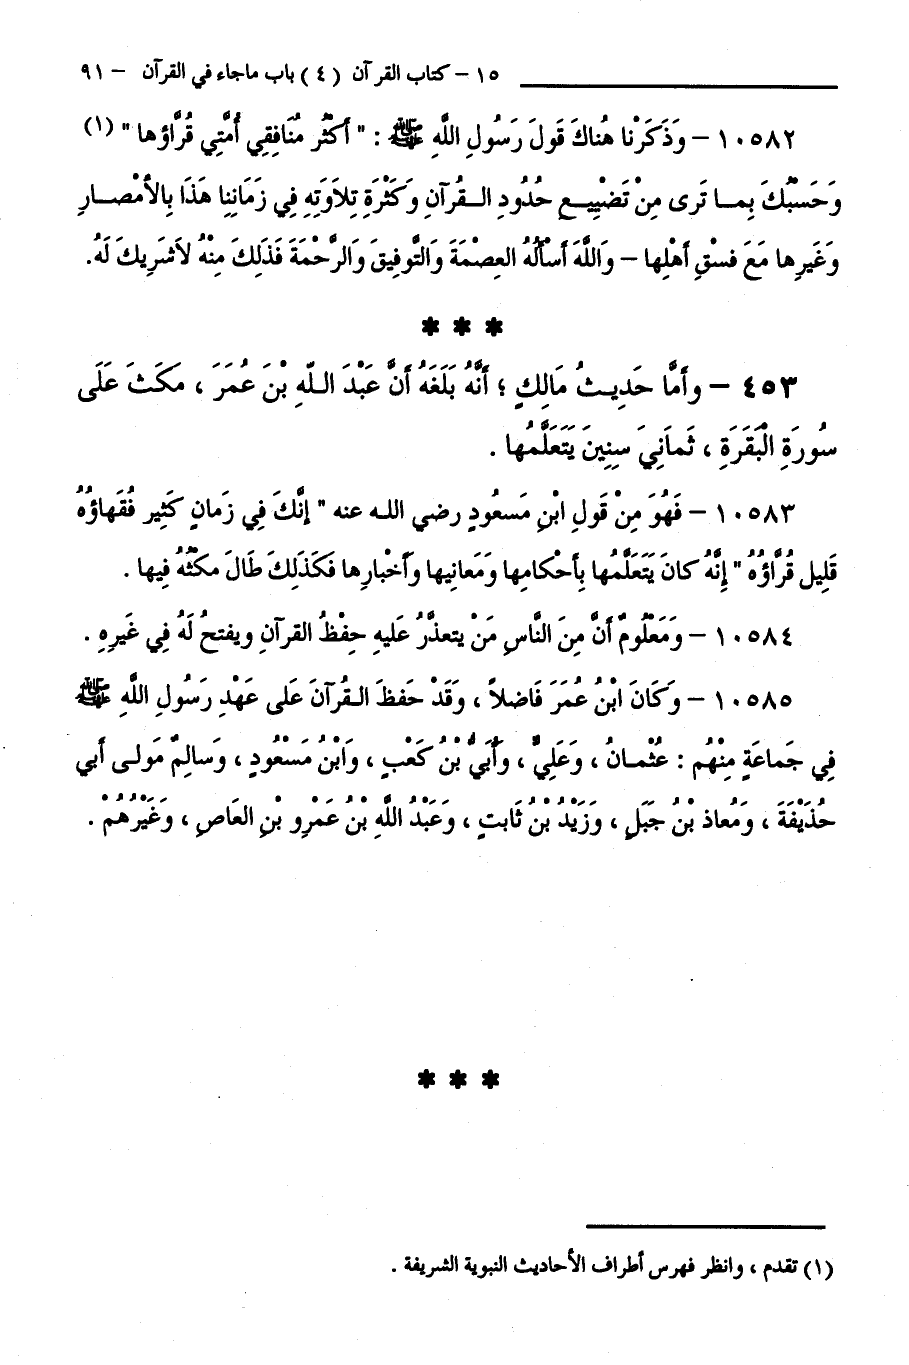 ١٥ – كتاب القرآن (٤) باب ماجاء في القرآن – ٩١
١٠٥٨٢ – وَذَكَرْنا هُناكَ قَولَ رَسُولِ اللَّهِ ﷺ : " أَكْثَر مُنَافِقِي أُمَّتِي قُرَّاؤها " (١)
وَحَسْبُكَ بِمـا تَرى مِنْ تَضْيِيـعِ حُدُودِ الـقُرآنِ وَكَثْرَةِ تِلاَوَتِهِ فِي زَمَانِنِا هَذَا بِالأمْصـارِ
وَغَيرِها مَعَ فسْقِ أهْلِها – وَاللَّهَ أسْأَلُهُ العِصْمَةَ وَالتَّوفِيقَ وَالرَّحْمَةَ فَذلِكَ مِنْهُ لاَشَرِيكَ لَهُ.
* * *
٤٥٣ – وأمَّا حَدِيـثُ مَالِكٍ ؛ أنَّهُ بَلَغَهُ أنَّ عَبْدَ الـلَّهِ بْنَ عُمَرَ ، مكَثَ عَلَى
سُورَةِ الْبَقَرَةِ ، ثَماَنِيَ سِنِينَ يَتَعَلَّمُها .
١٠٥٨٣ – فَهُوَ مِنْ قَولِ ابْنِ مَسعُودٍ رضي اللـه عنه " إنَّكَ فِي زَمانٍ كَثِيرٍ فُقَهاؤُهُ
قَلِيل قُرَّاؤُهُ " إنَّهُ كانَ يَتَعَلَّمُها بِأحْكامِها وَمَعانِيها وأخْبارِها فكَذلِكَ طَالَ مكثُهُ فِيها .
١٠٥٨٤ – وَمَعْلُومٌ أنَّ مِنَ النَّاسِ مَنْ يتعذَّرُ عَليهِ حِفْظُ القرآنِ ويفتحُ لَهُ فِي غَيرِهِ .
١٠٥٨٥ – وَكَانَ ابْنُ عُمَرَ فَاضلاً ، وَقَدْ حَفظَ الـقُرآنَ عَلى عَهْدِ رَسُولِ اللَّهِ ﷺ
فِي جَماعَةٍ مِنْهُم : عُثْمـانُ ، وَعَلِيٌّ ، وَأبَيُّ بْنُ كَعْبٍ ، وَابْنُ مَسْعُودٍ ، وَسالِمٌ مَولـى أبي
حُذَيْفَةَ ، وَمُعاذ بْنُ جَبَلٍ ، وَزَيْدُ بْنُ ثَابتٍ ، وَعَبْدُ اللَّهِ بْنُ عَمْرِو بْنِ العَاصِ ، وَغَيْرُهُمْ .
* * *
(١) تقدم ، وانظر فهرس أطراف الأحاديث النبوية الشريفة .